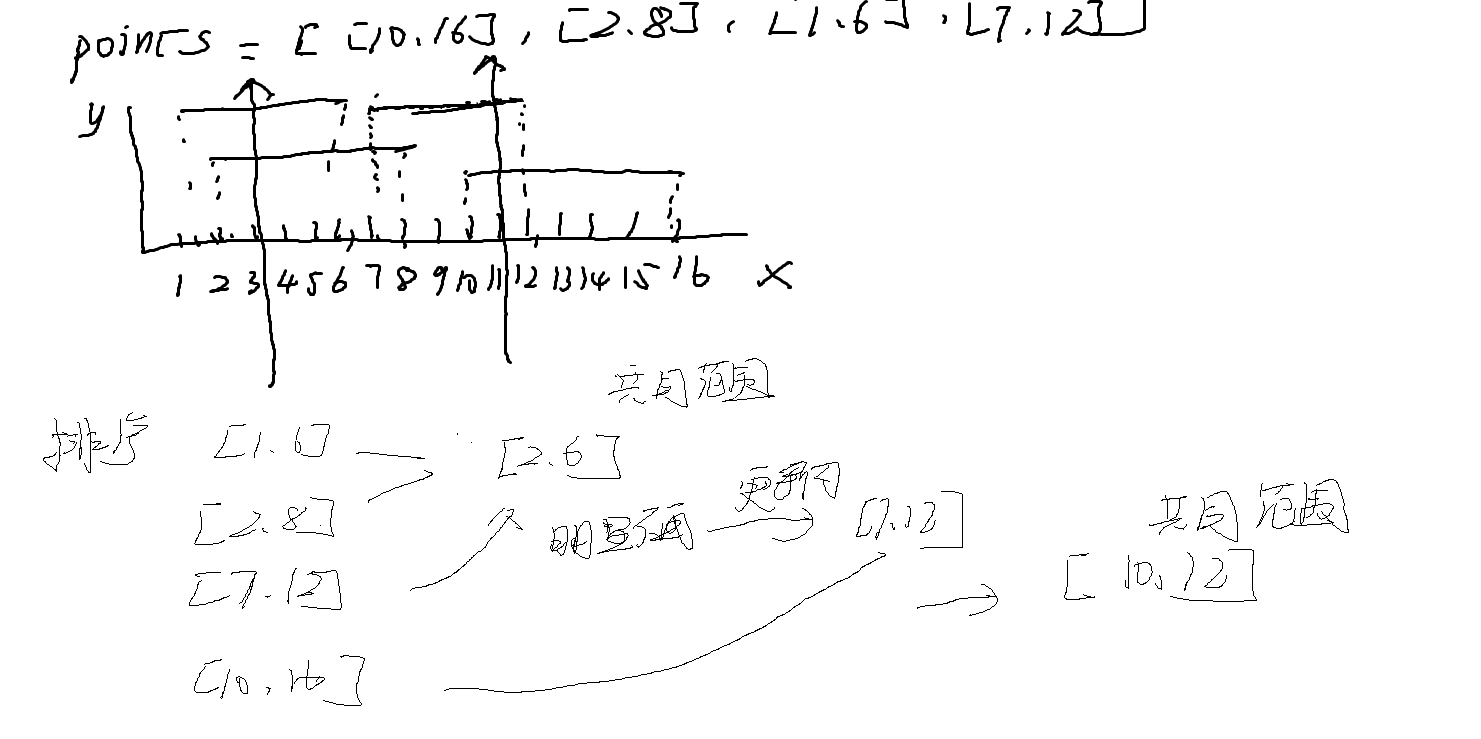 points = [ [10.16], [2.8], [1.6], [7.12] ]
y
1 2 3 4 5 6 7 8 9 10 11 12 13 14 15 16 x
共同范围
排序 [1.6] [2.6]
更新
[2.8] 明显 [7.12] 共同范围
[7.12] [10.12]
[10.16]